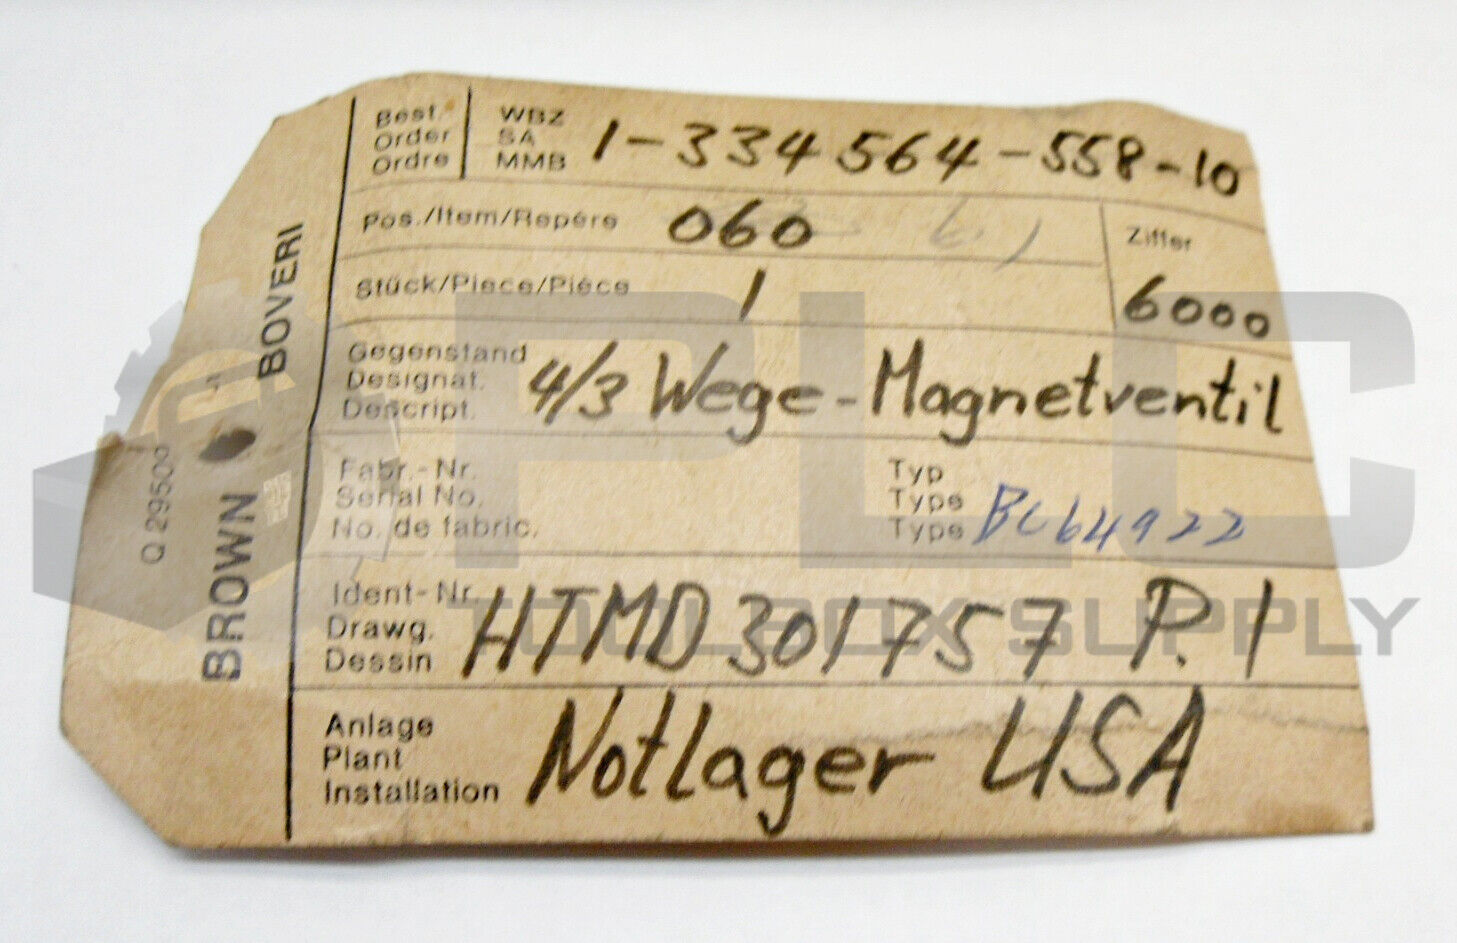 Best. WBZ
Order SA 1-334 564-558-10
Ordre MMB
Pos./Item/Repère 060 Ziffer
Stück/Piece/Pièce 1 6000
Gegenstand
Designat. 4/3 Wege-Magnetventil
Descript.
Fabr.-Nr. Typ
Serial No. Type
No. de fabric. Type BC64922
Ident-Nr.
Drawg. HTMD 301757 P.1
Dessin
Anlage
Plant Notlager USA
Installation
BROWN BOVERI
Q 29500
PLC
TOOLBOX SUPPLY